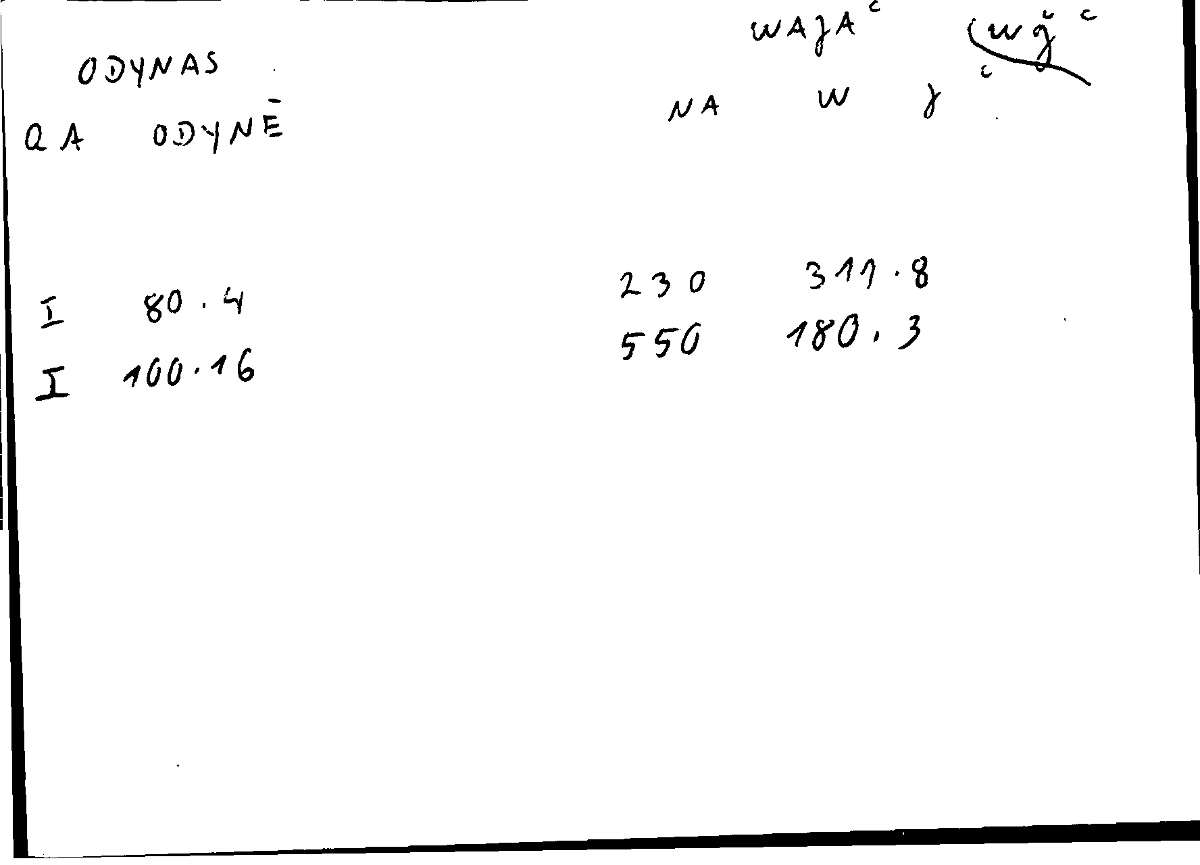 ODYNAS
QA ODYNĒ
I 80.4
I 100.16
WAJAᶜ
NA W J ᶜ
230 311.8
550 180.3